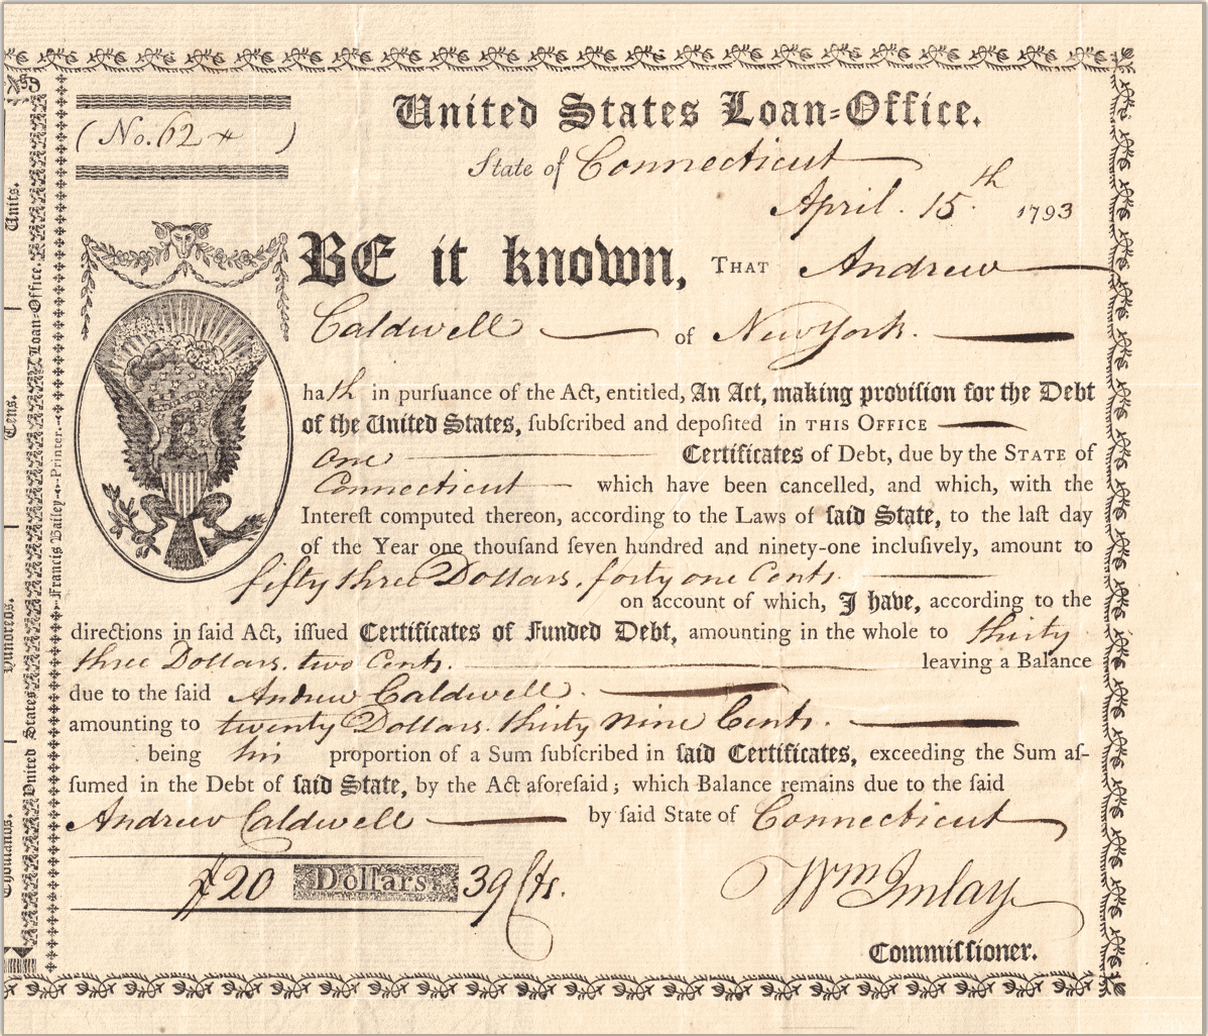 United States Loan-Office.
(No. 62 )
State of Connecticut
April. 15.th 1793
BE it known, THAT Andrew
Caldwell of New York.
hath in purſuance of the Act, entitled, An Act, making proviſion for the Debt
of the United States, ſubſcribed and depoſited in THIS OFFICE
one Certificates of Debt, due by the STATE of
Connecticut which have been cancelled, and which, with the
Intereſt computed thereon, according to the Laws of ſaid State, to the laſt day
of the Year one thouſand ſeven hundred and ninety-one incluſively, amount to
fifty three Dollars. forty one Cents.
on account of which, I have, according to the
directions in ſaid Act, iſſued Certificates of Funded Debt, amounting in the whole to thirty
three Dollars. two Cents. leaving a Balance
due to the ſaid Andrew Caldwell.
amounting to twenty Dollars. thirty nine Cents.
being his proportion of a Sum ſubſcribed in ſaid Certificates, exceeding the Sum aſ-
ſumed in the Debt of ſaid State, by the Act aforeſaid; which Balance remains due to the ſaid
Andrew Caldwell by ſaid State of Connecticut
20 Dollars, 39 Cts.
Wm Imlay
Commiſſioner.
Units.
Tens.
Hundreds.
Thouſands.
United States Loan-Office.
Francis Bailey Printer